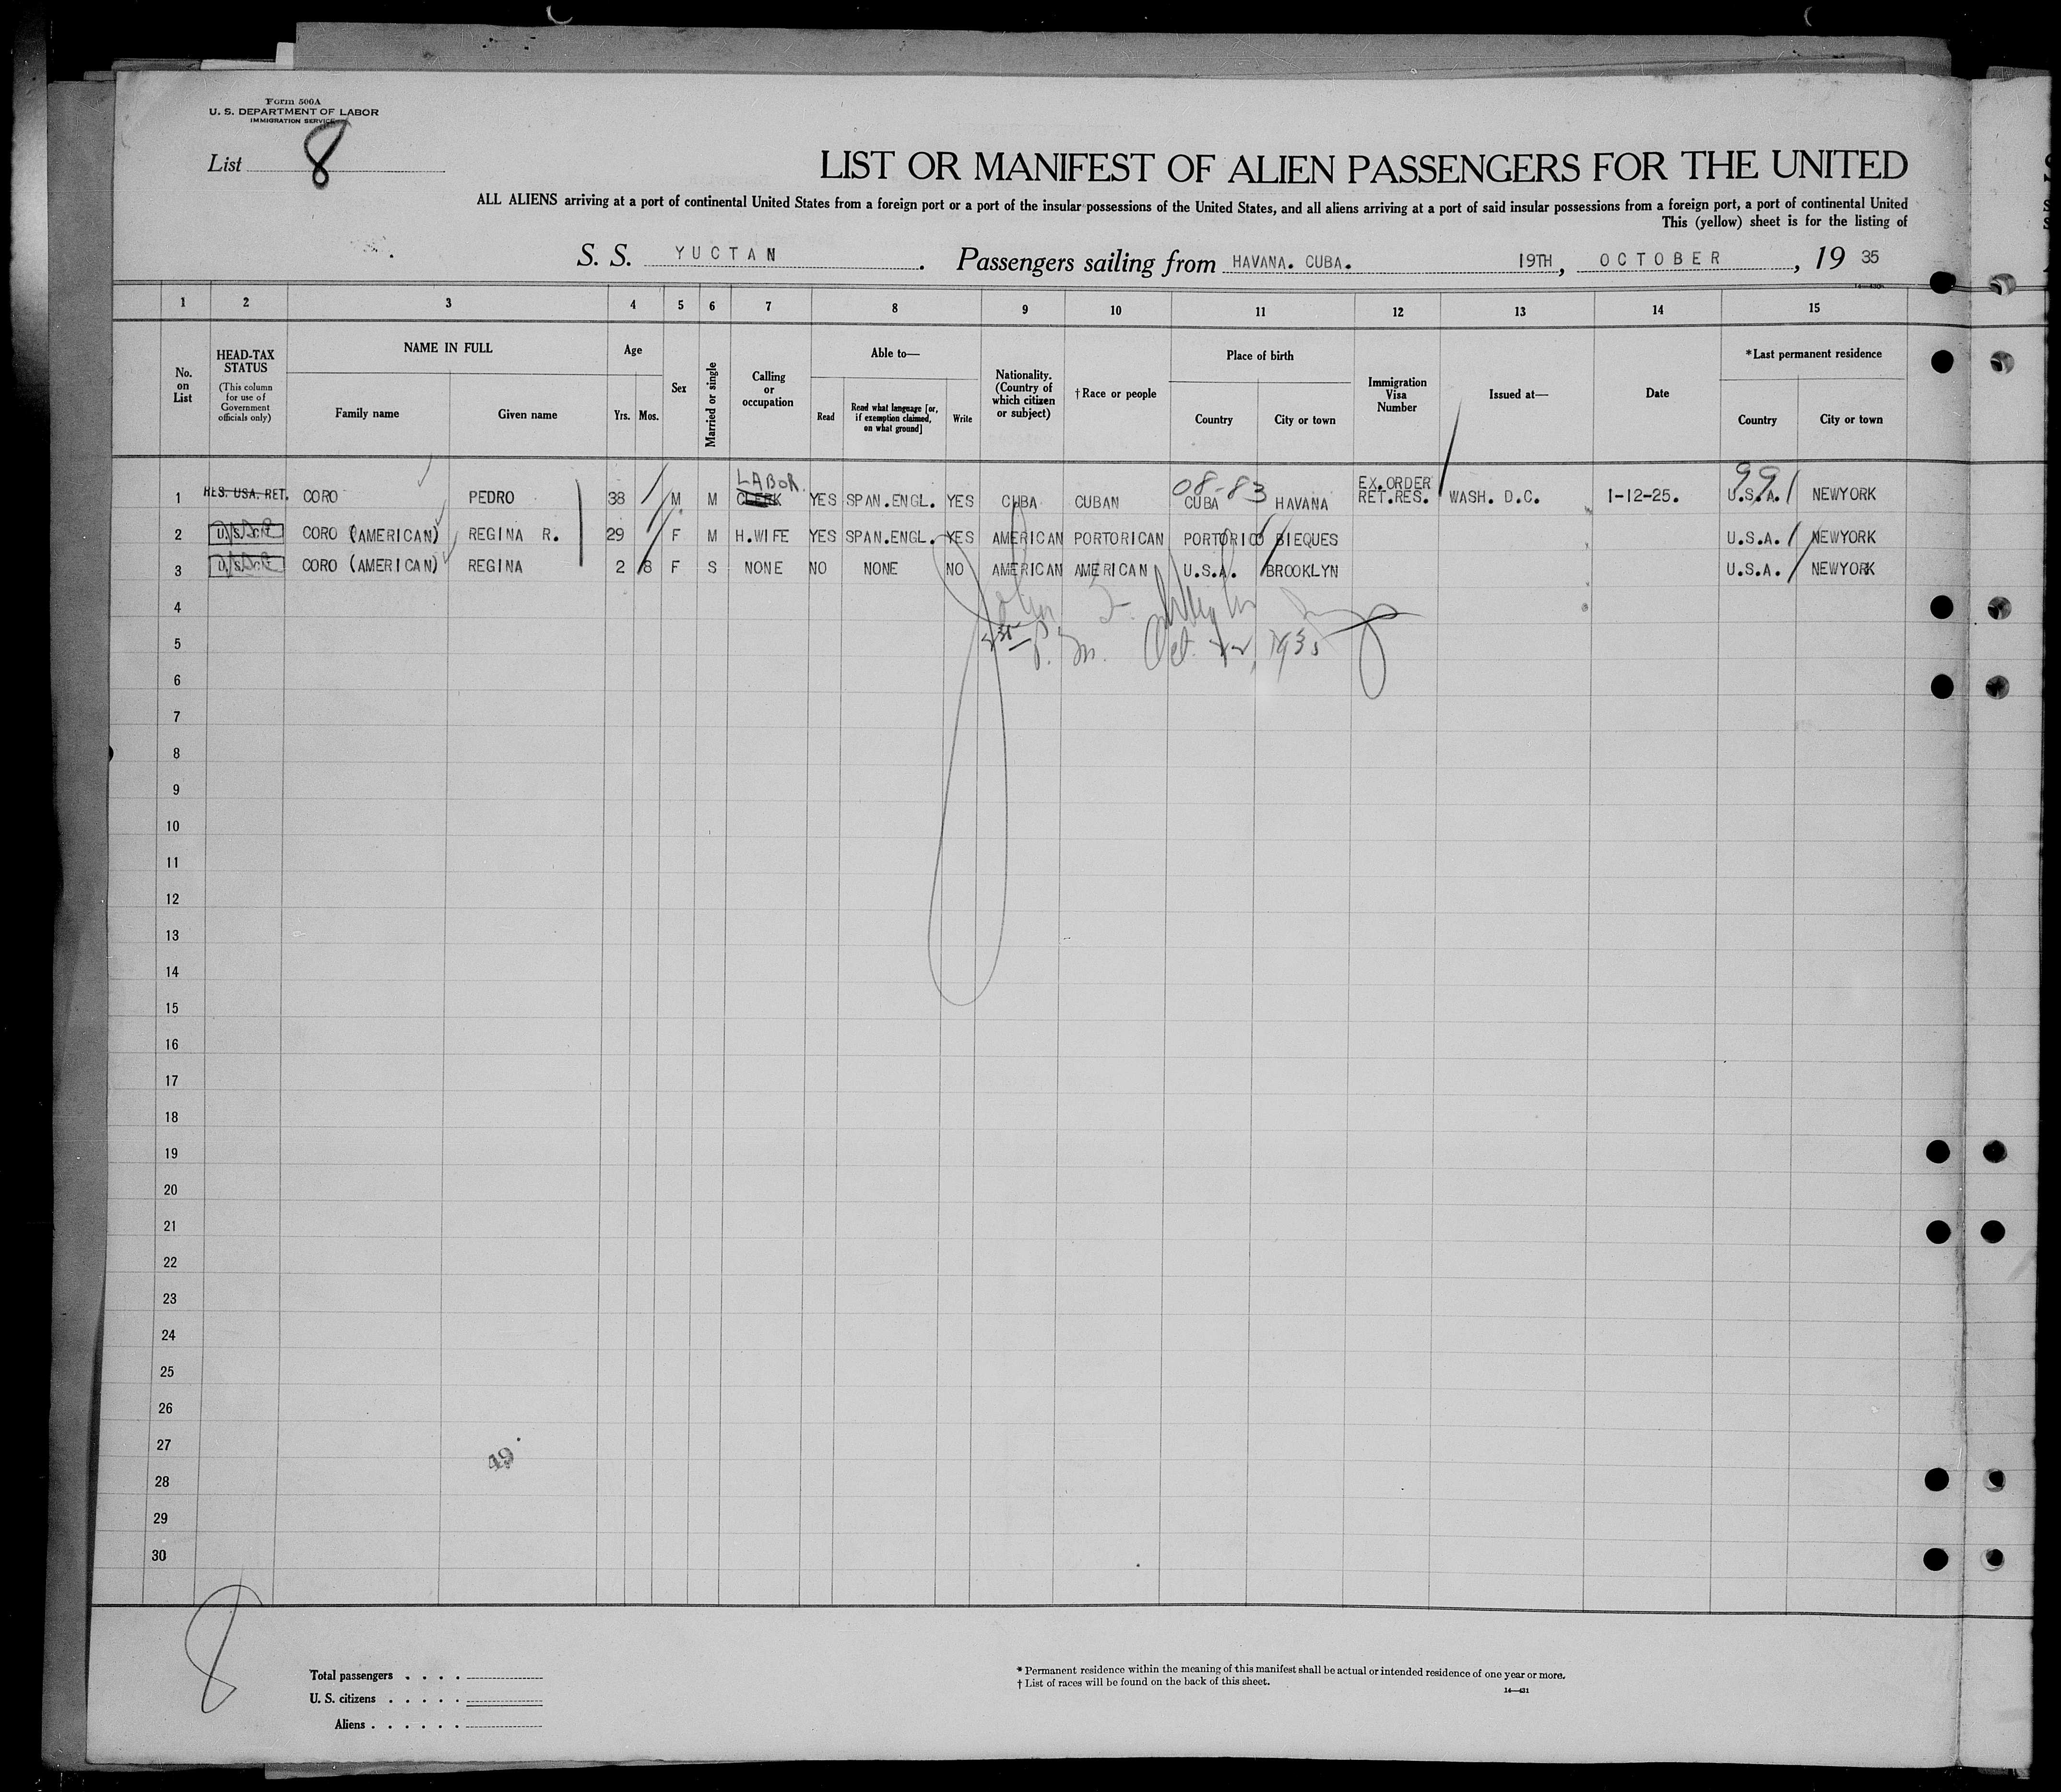 Form 500A
U. S. DEPARTMENT OF LABOR
IMMIGRATION SERVICE
List 8
LIST OR MANIFEST OF ALIEN PASSENGERS FOR THE UNITED
ALL ALIENS arriving at a port of continental United States from a foreign port or a port of the insular possessions of the United States, and all aliens arriving at a port of said insular possessions from a foreign port, a port of continental United
This (yellow) sheet is for the listing of
S. S. YUCTAN. Passengers sailing from HAVANA. CUBA. 19TH, OCTOBER, 19 35
1 2 3 4 5 6 7 8 9 10 11 12 13 14 15
No. on List
HEAD-TAX STATUS (This column for use of Government officials only)
NAME IN FULL
Family name Given name
Age
Yrs. Mos.
Sex
Married or single
Calling or occupation
Able to—
Read Read what language [or, if exemption claimed, on what ground] Write
Nationality. (Country of which citizen or subject)
† Race or people
Place of birth
Country City or town
Immigration Visa Number
Issued at—
Date
*Last permanent residence
Country City or town
LABOR 08-83 EX.ORDER 991
1 RES. USA. RET. CORO PEDRO 38 M M CLERK YES SPAN.ENGL. YES CUBA CUBAN CUBA HAVANA RET.RES. WASH. D.C. 1-12-25. U.S.A. NEWYORK
2 U.S.C. CORO (AMERICAN) REGINA R. 29 F M H.WIFE YES SPAN.ENGL. YES AMERICAN PORTORICAN PORTORICO BIEQUES U.S.A. NEWYORK
3 U.S.C. CORO (AMERICAN) REGINA 2 8 F S NONE NO NONE NO AMERICAN AMERICAN U.S.A. BROOKLYN U.S.A. NEWYORK
4
John F.
5
P. m. Oct. 1935
6
7
8
9
10
11
12
13
14
15
16
17
18
19
20
21
22
23
24
25
26
27
49
28
29
30
8
Total passengers . . . .
U. S. citizens . . . . .
Aliens . . . . . .
* Permanent residence within the meaning of this manifest shall be actual or intended residence of one year or more.
† List of races will be found on the back of this sheet.
14—431